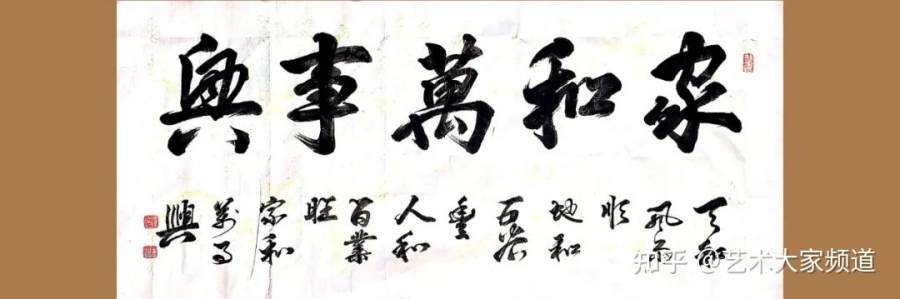 家和萬事興
天
風雨
順
地和
百谷
豐
人和
百業
旺
家和
萬事
興
知乎 @艺术大家频道